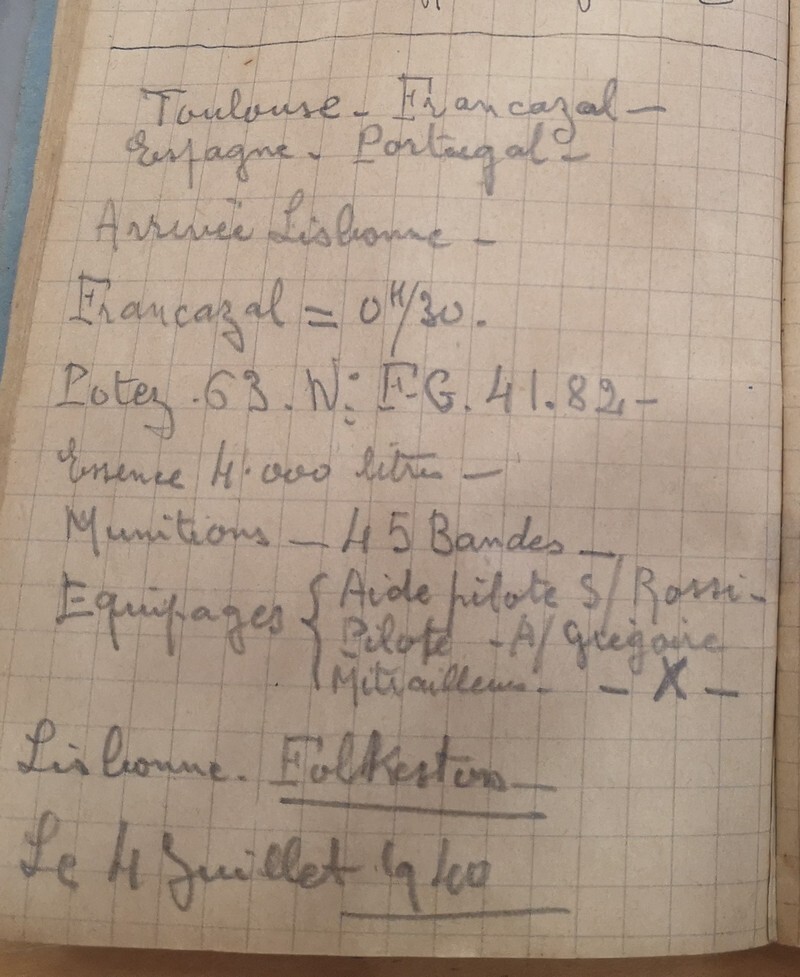 Toulouse - Francazal -
Espagne - Portugal -
Arrivée Lisbonne -
Francazal = 0H/30.
Potez. 63. N: FG. 41.82 -
Essence 4.000 litres -
Munitions - 45 Bandes -
Equipages { Aide pilote S/ Rossi -
Pilote - A/ Grégoire
Mitrailleur - - X -
Lisbonne. Folkeston -
Le 4 Juillet 1940